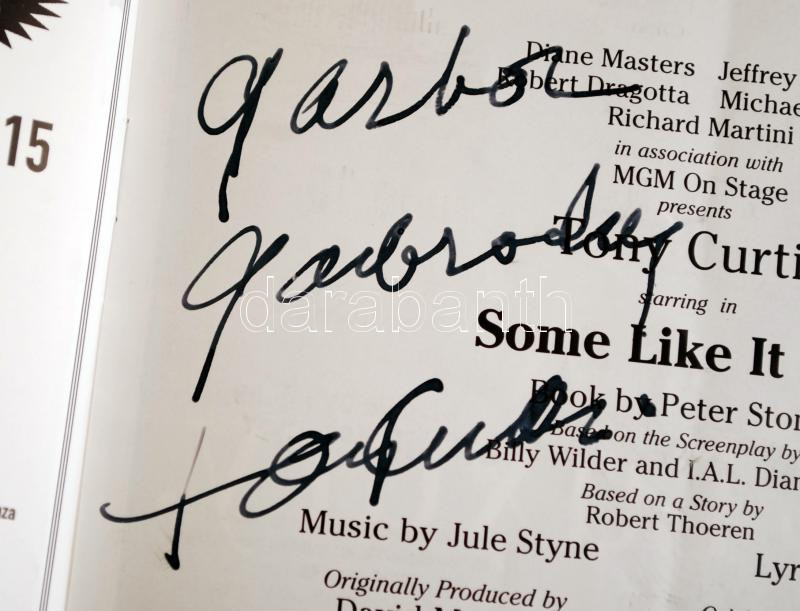 15
Diane Masters Jeffrey
Robert Dragotta Michae
Richard Martini
in association with
MGM On Stage
presents
Tony Curti
starring in
Some Like It
Book by Peter Ston
Based on the Screenplay by
Billy Wilder and I.A.L. Dian
Based on a Story by
Robert Thoeren
Music by Jule Styne
Lyr
Originally Produced by
darabanth
nza